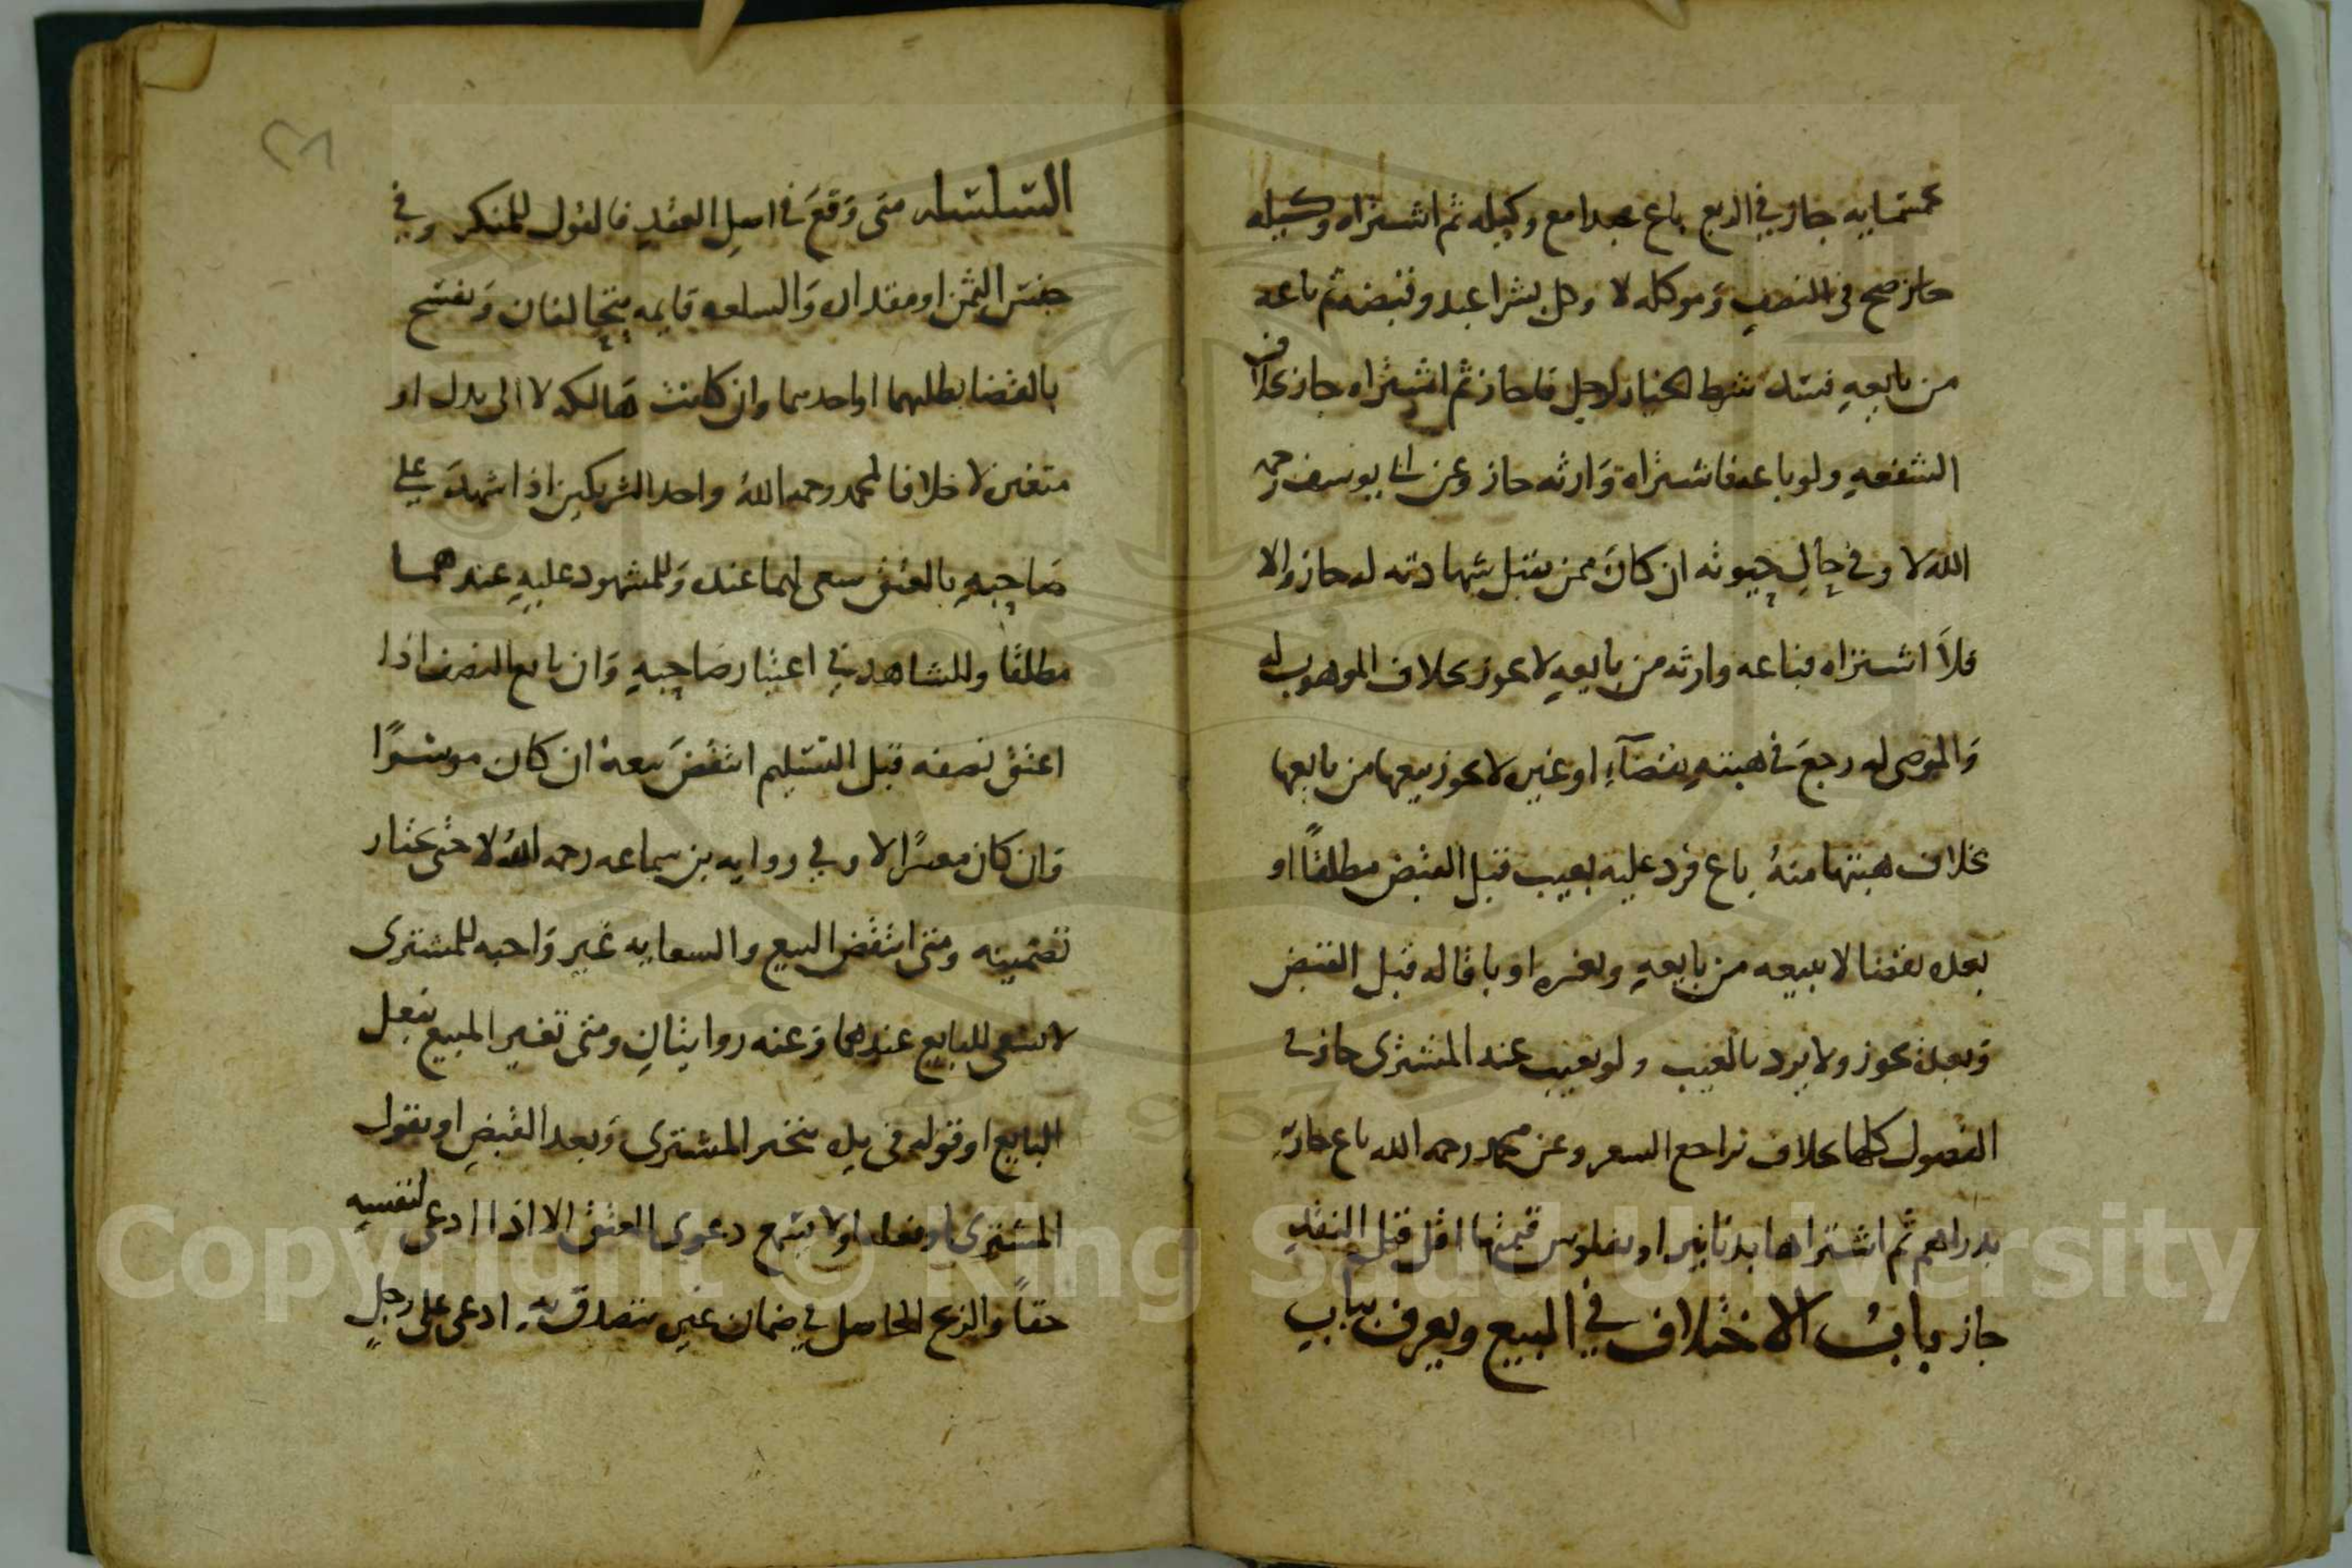 بخمسمايه جاز في الربع باع عبدا مع وكيله ثم اشتراه وكيله
جاز صح في النصف وموكله لا وكل بشرا عبد وقبضه ثم باعه
من بايعه فسد شرط الخيار لاجل فاجاز ثم اشتراه جاز بخلاف
الشفعه ولو باعه فاشتراه وارثه جاز وعن ابي يوسف رحمه
الله لا وفي حال حيوته ان كان ممن يقبل شهادته له جاز والا
فلا اشتراه فباعه وارثه من بايعه لا يجوز بخلاف الموهوب له
والموصى له رجع في هبته بقضاء او غيره لا يجوز بيعها من بايعها
بخلاف هبتها منه باع فرد عليه بعيب قبل القبض مطلقا او
بعده بقضا لا يبيعه من بايعه وبغيره او باقاله قبل القبض
وبعده يجوز ولا يرد بالعيب ولو تعيب عند المشترى جاز في
الفصول كلها بخلاف تراجع السعر وعن محمد رحمه الله باع جارية
بدراهم ثم اشتراها بدنانير او بفلوس قيمتها اقل قبل النقد
جاز باب الاختلاف في البيع ويعرف بباب
السلسله متى وقع في اصل العقد فالقول للمنكر وفي
جنس الثمن او مقداره والسلعه قايمه يتحالفان ويفسخ
بالقضا بطلبهما او احدهما وان كانت هالكه لا الى بدل او
متغيره لا خلافا لمحمد رحمه الله واحد الشريكين اذا شهد على
صاحبه بالعتق سعى لهما عنده وللمشهود عليه عندهما
مطلقا وللشاهد في اعتبار صاحبه وان بايع النصف اذا
اعتق نصفه قبل التسليم انتقض بيعه ان كان موسرا
وان كان معسرا لا وفي روايه بن سماعه رحمه الله لا حتى يختار
تضمينه ومتى انتقض البيع والسعايه غير واجبه للمشترى
لا يسعى للبايع عندهما وعنه روايتان ومتى تغير المبيع بفعل
البايع او قوله في يده يتخير المشترى وبعد القبض او بقول
المشترى او بفعله لا ولا يسمع دعوى العتق الا اذا ادعى لنفسه
حقا والربح الحاصل في ضمان غيره يتصدق به ادعى على رجل